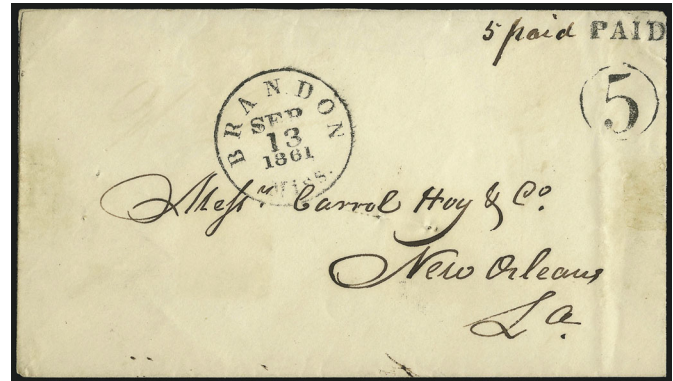 5 paid PAID
5
BRANDON
SEP
13
1861
Miss.
Messrs Carrol Hoy & Co.
New Orleans
La